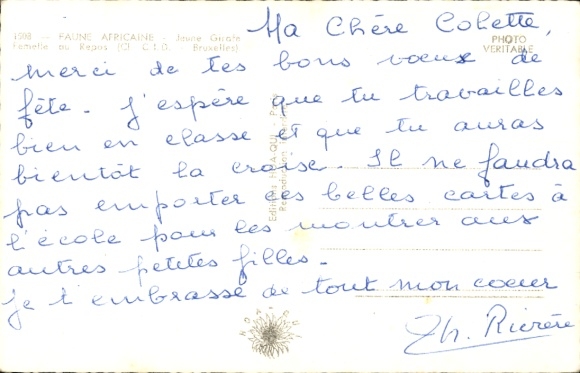 1508 - FAUNE AFRICAINE - Jeune Girafe
Femelle au Repos (Cl. C.I.D. Bruxelles)
PHOTO
VERITABLE
Ma Chère Colette,
merci de tes bons voeux de
fête. J'espère que tu travailles
bien en classe et que tu auras
bientôt la croix. Il ne faudra
pas emporter les belles cartes à
l'école pour les montrer aux
autres petites filles.
Je t'embrasse de tout mon coeur
Th. Rivière
Editions HOA-QUI - Paris